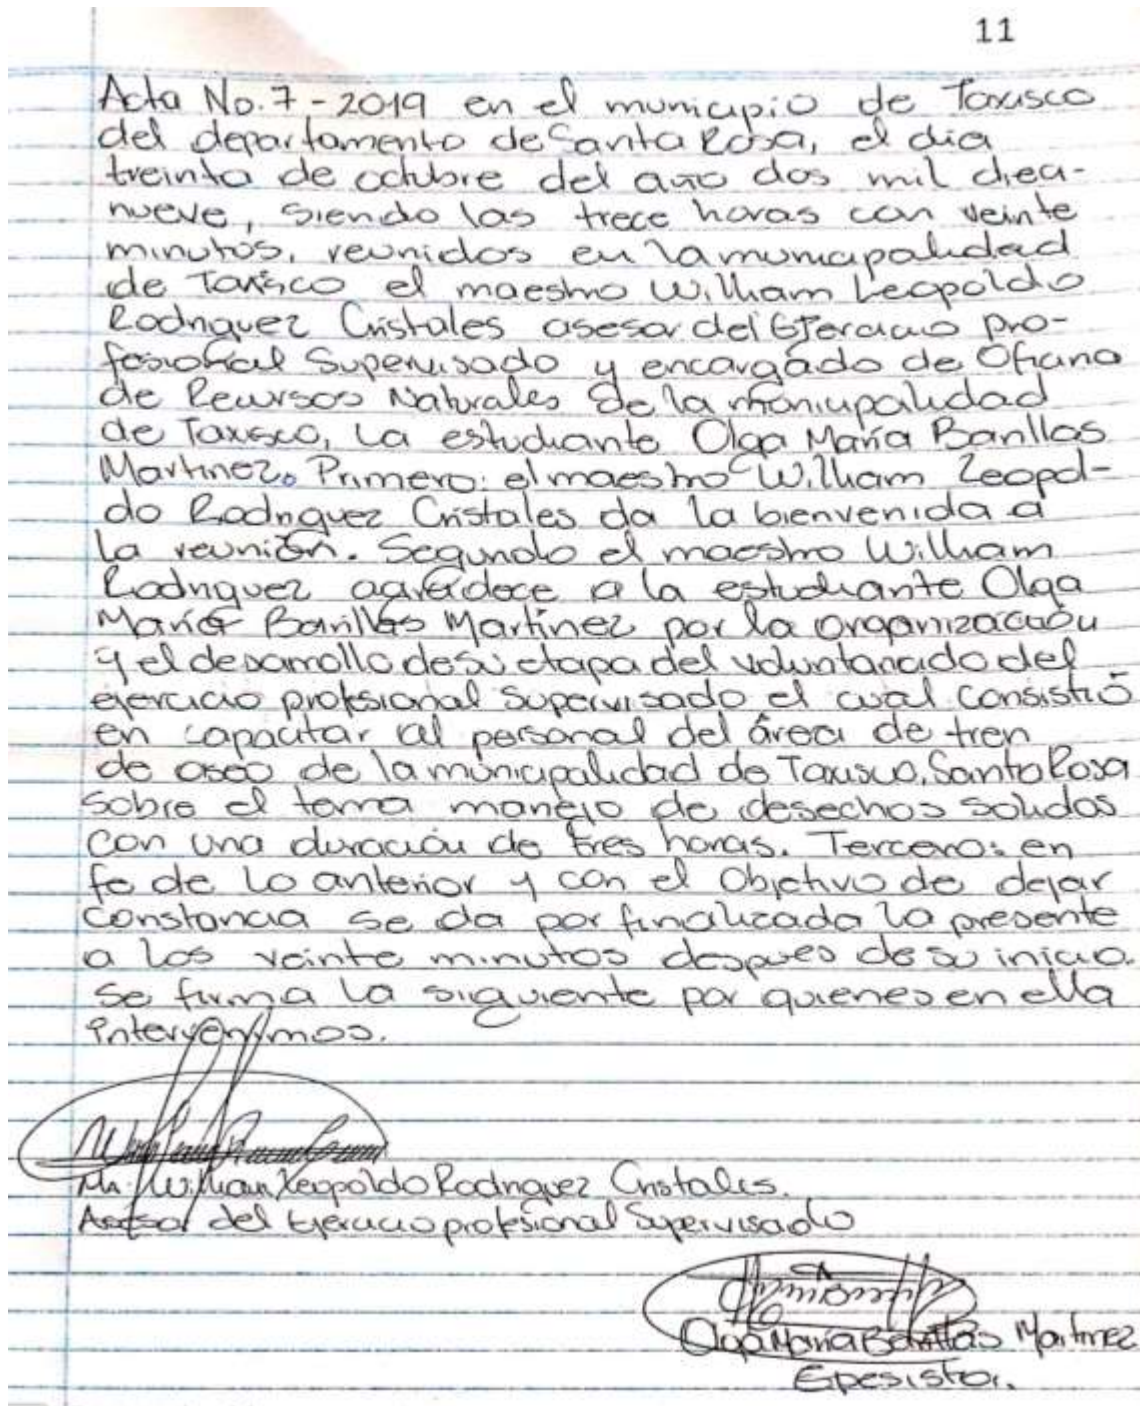 11
Acta No. 7 - 2019 en el municipio de Taxisco
del departamento de Santa Rosa, el dia
treinta de octubre del año dos mil dieci-
nueve, siendo las trece horas con veinte
minutos, reunidos en la municipalidad
de Taxisco el maestro William Leopoldo
Rodriguez Cristales asesor del Ejercicio pro-
fesional Supervisado y encargado de Oficina
de Recursos Naturales de la municipalidad
de Taxisco, La estudiante Olga María Barillas
Martinez. Primero: el maestro William Leopol-
do Rodriguez Cristales da la bienvenida a
La reunión. Segundo el maestro William
Rodriguez agradece a la estudiante Olga
María Barillas Martinez por la organización
y el desarrollo de su etapa del voluntariado del
ejercicio profesional Supervisado el cual consistió
en capacitar al personal del área de tren
de aseo de la municipalidad de Taxisco, Santa Rosa
sobre el tema manejo de desechos solidos
con una duración de tres horas. Tercero: en
fe de lo anterior y con el Objetivo de dejar
constancia se da por finalizada la presente
a los veinte minutos despues de su inicio.
Se firma la siguiente por quienes en ella
intervenimos.
William Leopoldo Rodriguez Cristales.
Asesor del Ejercicio profesional Supervisado
Olga María Barillas Martinez
Epesista.